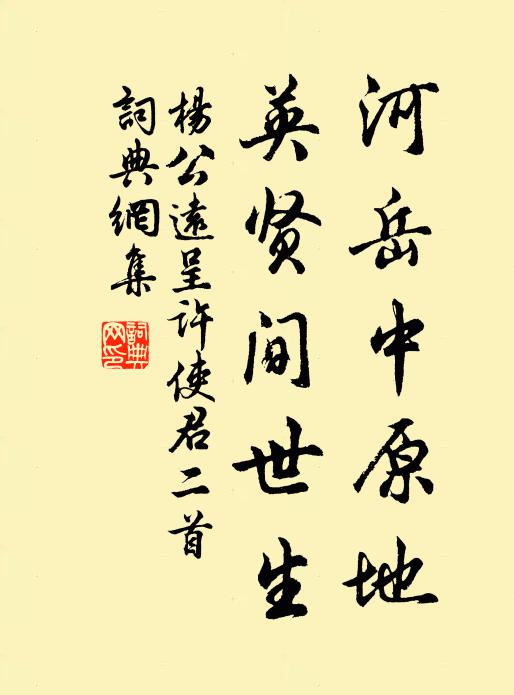 河岳中原地
英贤间世生
楊公遠呈许使君二首
詞典網集
詞典
网印